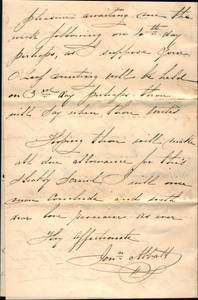 pleasure awaiting one the
week following on 10th day
perhaps, as I suppose your
O meeting will be held
on 3rd day Perhaps thou
will Say when thou writes
Hoping thou will make
all due allowance for this
Shabby Scrawl I will now
conclude and with
dear love remain as ever
Thy affectionate
Jonn Abbatt